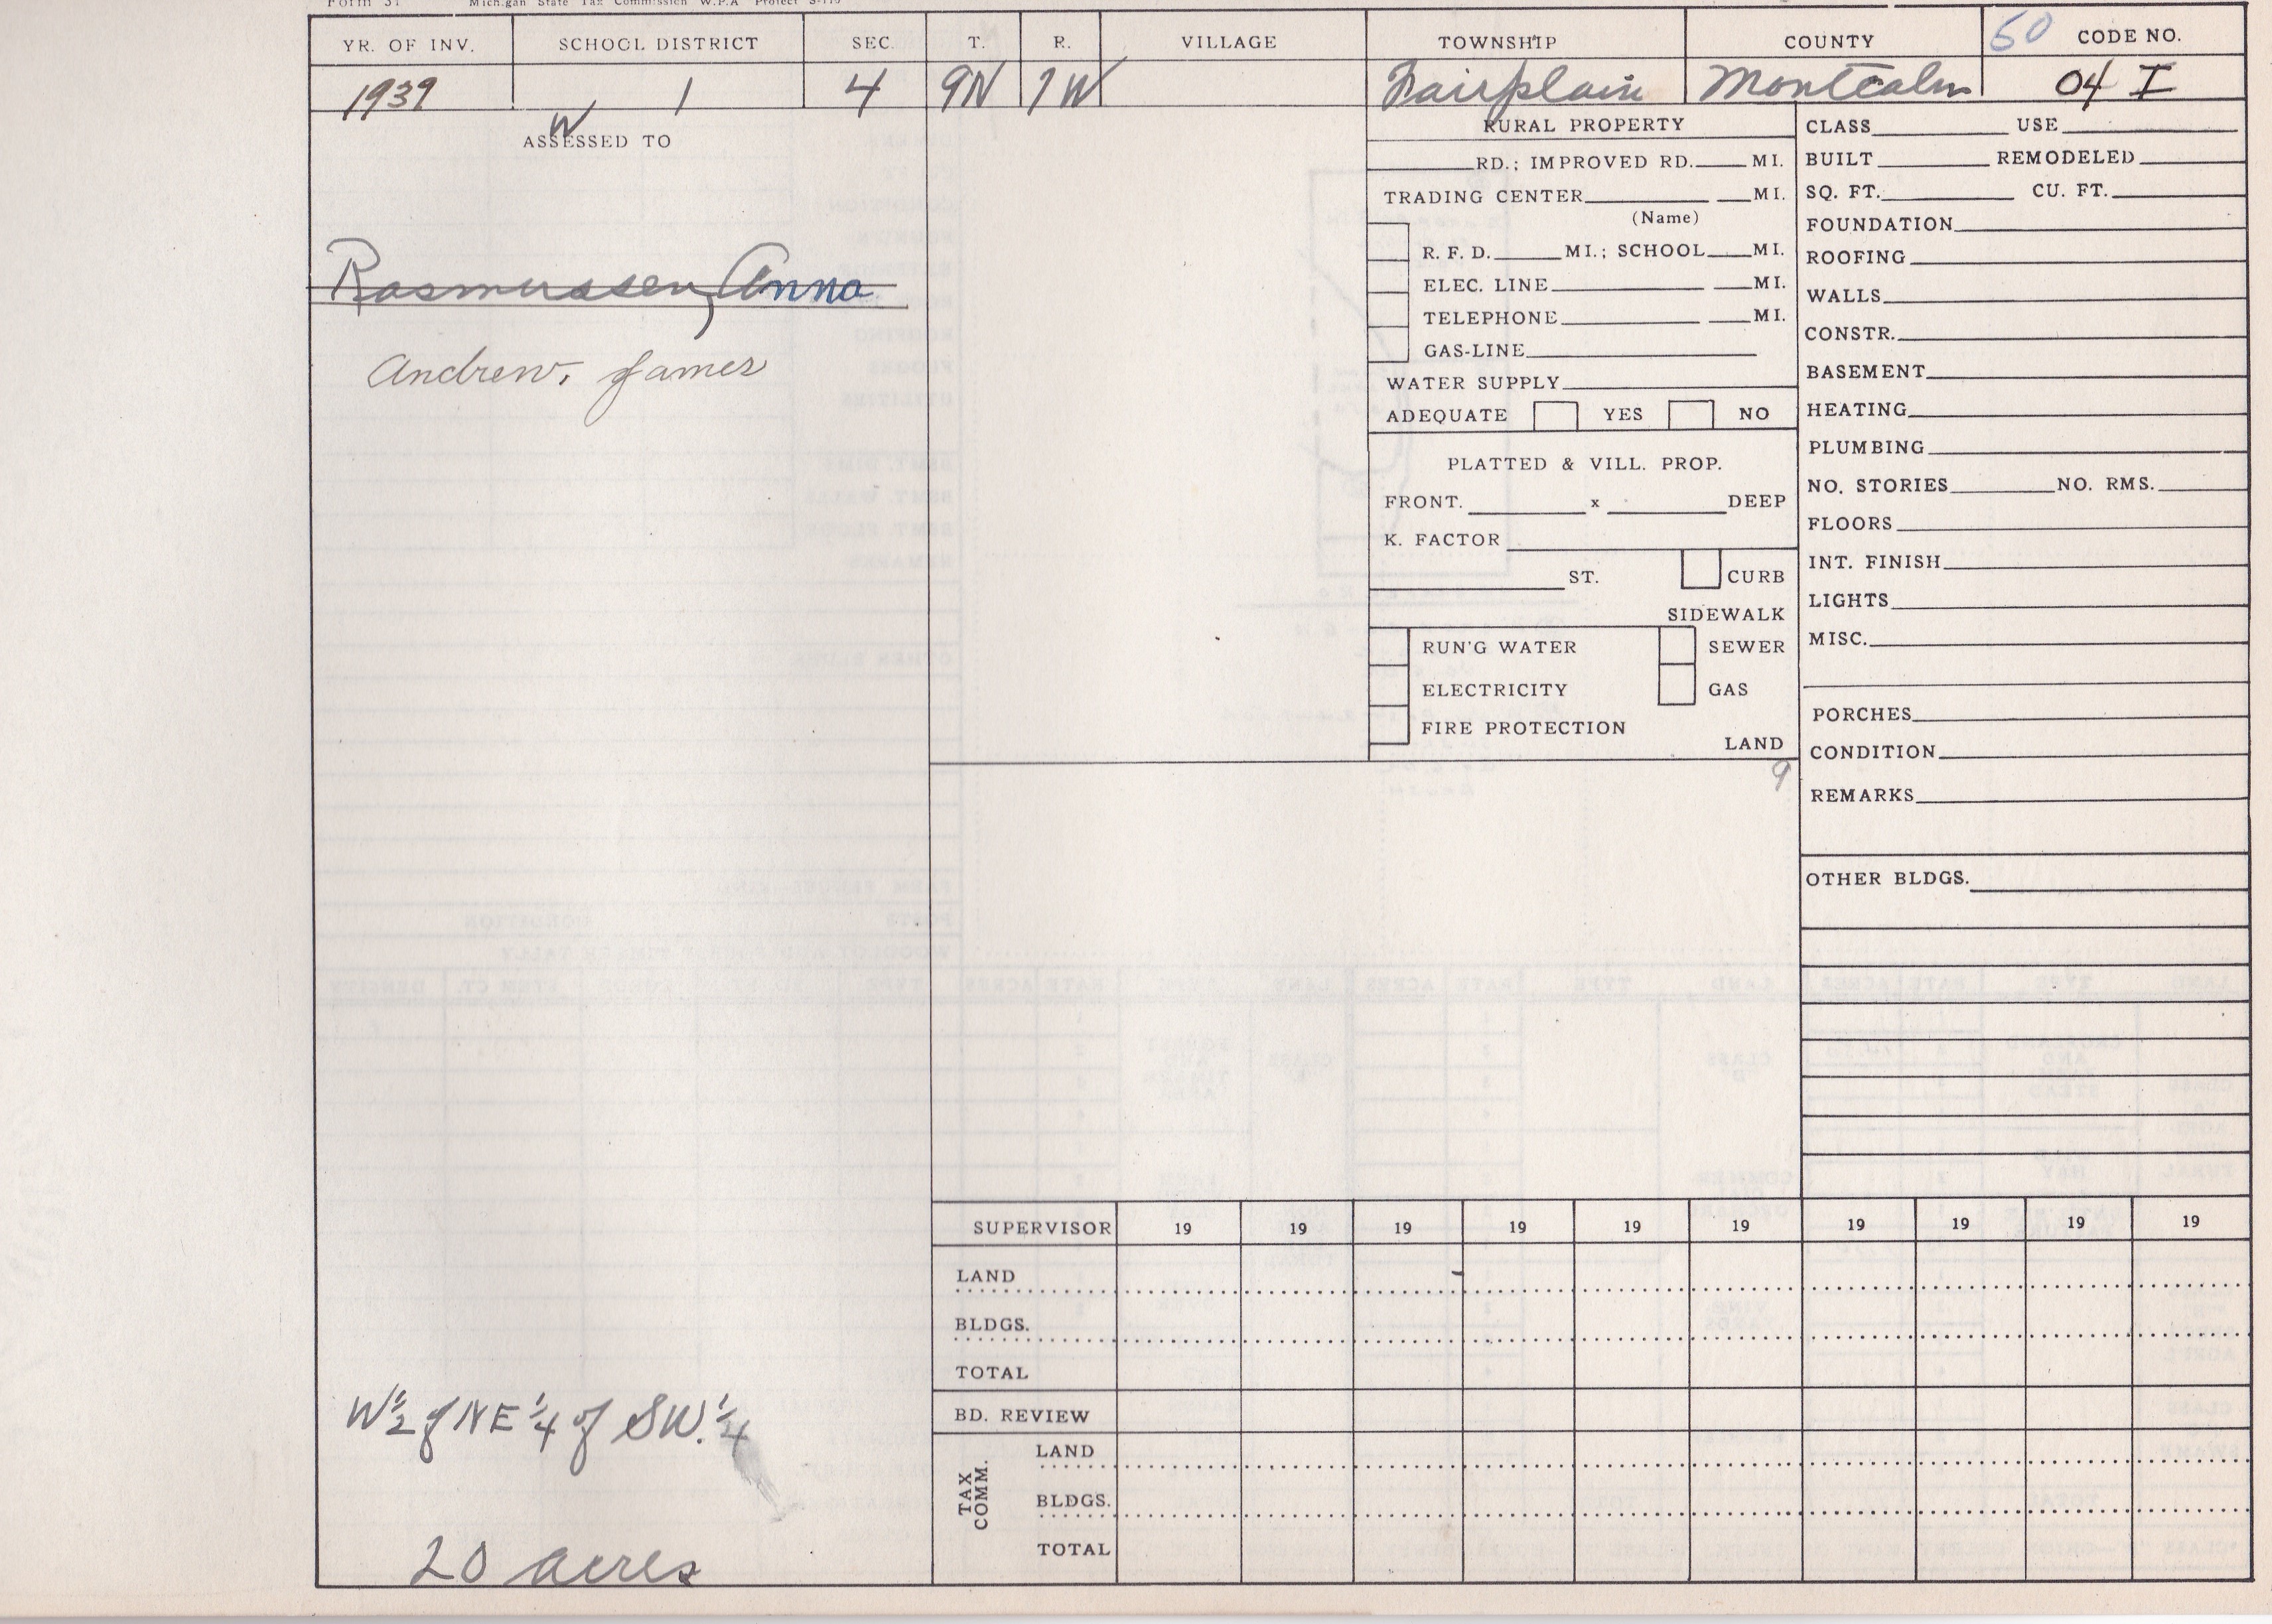 Form 31 Michigan State Tax Commission W.P.A Project S-170
YR. OF INV. SCHOOL DISTRICT SEC. T. R. VILLAGE TOWNSHIP COUNTY 50 CODE NO.
1939 1 4 9N 7W Fairplain Montcalm 04 I
W
ASSESSED TO
Rasmussen, Anna
Andrew, James
W 1/2 of NE 1/4 of SW. 1/4
20 acres
RURAL PROPERTY
RD.; IMPROVED RD. MI.
TRADING CENTER MI.
(Name)
R. F. D. MI.; SCHOOL MI.
ELEC. LINE MI.
TELEPHONE MI.
GAS-LINE
WATER SUPPLY
ADEQUATE YES NO
PLATTED & VILL. PROP.
FRONT. x DEEP
K. FACTOR
ST. CURB
SIDEWALK
RUN'G WATER SEWER
ELECTRICITY GAS
FIRE PROTECTION
LAND
9
CLASS USE
BUILT REMODELED
SQ. FT. CU. FT.
FOUNDATION
ROOFING
WALLS
CONSTR.
BASEMENT
HEATING
PLUMBING
NO. STORIES NO. RMS.
FLOORS
INT. FINISH
LIGHTS
MISC.
PORCHES
CONDITION
REMARKS
OTHER BLDGS.
SUPERVISOR 19 19 19 19 19 19 19 19 19 19
LAND
BLDGS.
TOTAL
BD. REVIEW
TAX COMM.
LAND
BLDGS.
TOTAL